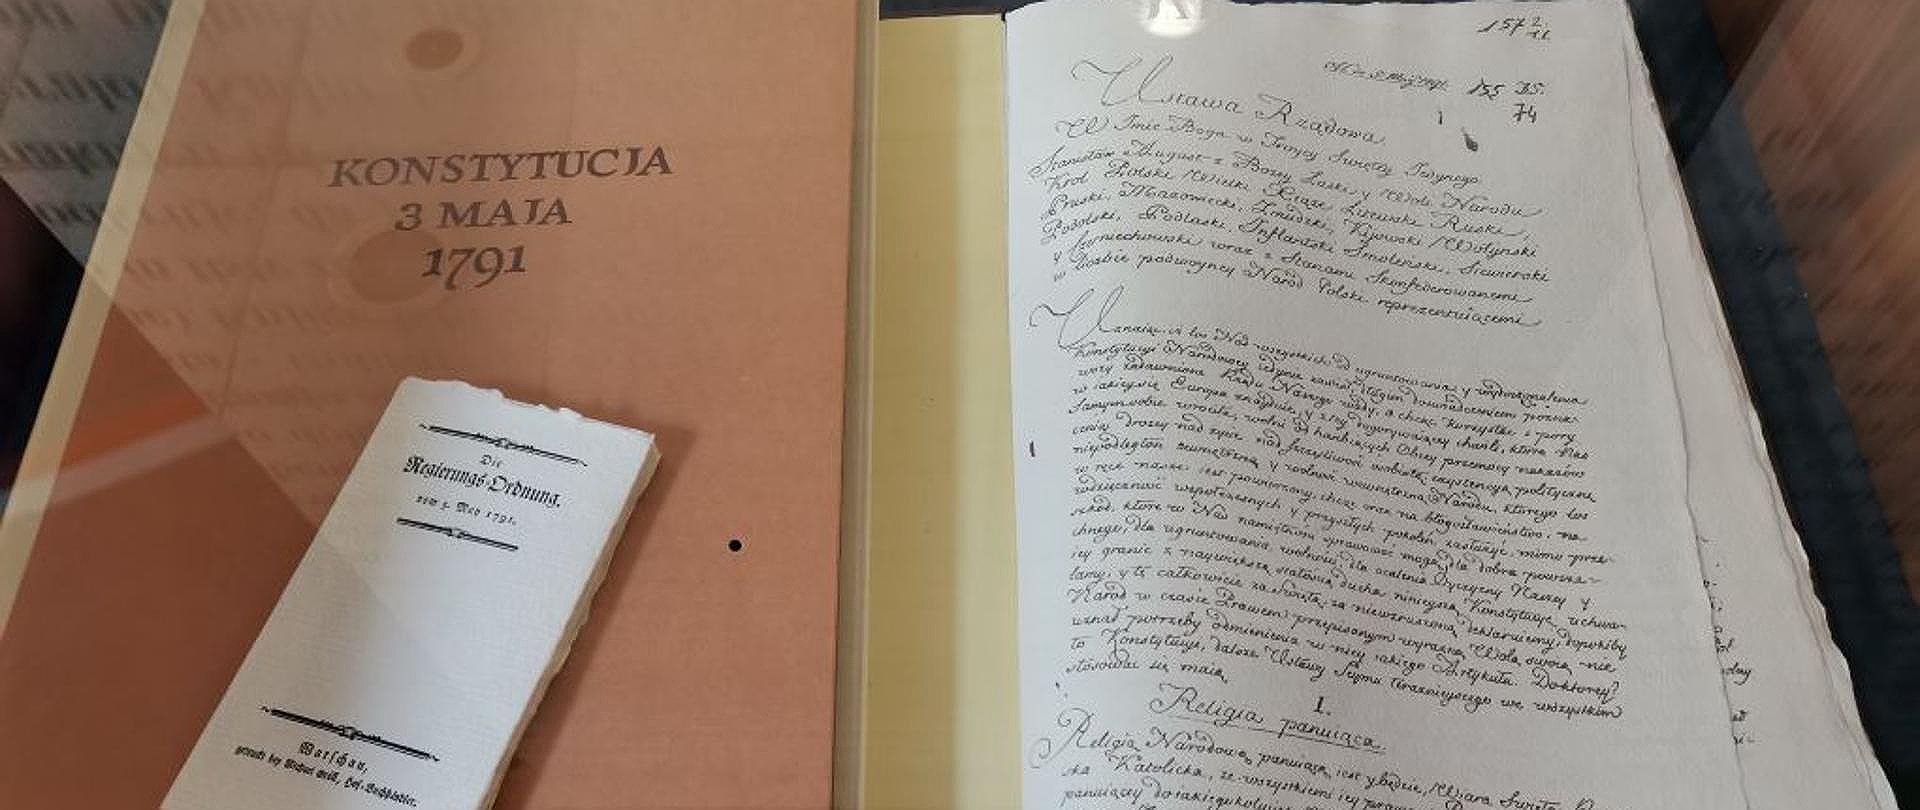 KONSTYTUCJA
3 MAJA
1791
Die
Regierungs-Ordnung.
vom 3. May 1791.
Warschau,
gedruckt bey Michael Gröll, Hof-Buchhändler.
157
155
74
Ustawa Rządowa
W Imie Boga w Troycy Swiętey Jedynego
Stanisław August z Bozey Łaski y Woli Narodu
Krol Polski Wielki Xiąze Litewski Ruski,
Pruski, Mazowiecki, Zmudzki, Kijowski Wołynski
Podolski, Podlaski, Inflantski Smolenski, Siewierski
y Czerniechowski wraz z Stanami Skonfederowanemi
w liczbie podwoyney Naród Polski reprezentuiącemi
Uznaiąc, iż los Nas wszystkich od ugruntowania y wydoskonalenia
Konstytucyi Narodowey iedynie zawisł, długim doswiadczeniem poznawszy
zadawnione Rządu Naszego wady, a chcąc korzystać z pory
w iakieysię Europa znayduie, y z tey dogorywaiącey chwili, która Nas
samym sobie wrociła, wolni od hanbiących Obcey przemocy nakazów
ceniąc drozey nad zycie, nad szczęsliwość osobistą, exystencyą polityczną
niepodległość zewnętrzną y wolność wewnętrzną Narodu, którego los
w ręce nasze iest powierzony, chcąc oraz na błogosławienstwo, na
wdzięczność wspołczesnych y przyszłych pokolen zasłuzyć, mimo prze-
szkod, które w Nas namiętnosci sprawować mogą, dla dobra powsze-
chnego, dla ugruntowania wolnosci, dla ocalenia Oyczyzny Naszey y
iey granic z naywiększą stałoscią ducha ninieyszą Konstytucyę uchwa-
lamy, y tę całkowicie za swiętą, za niewzruszoną deklaruiemy, dopokiby
Naród w czasie Prawem przepisanym wyrazną Wolą swoią nie
uznał potrzeby odmienienia w niey iakiego Artykułu. Do ktorey
to Konstytucyi, dalsze Ustawy Seymu teraznieyszego we wszystkim
stosować się maią.
I.
Religia panuiąca.
Religią Narodową panuiącą iest y będzie, Wiara Swięta
ska Katolicka, ze wszystkiemi iey
panuiącey do iakiegokolwiek